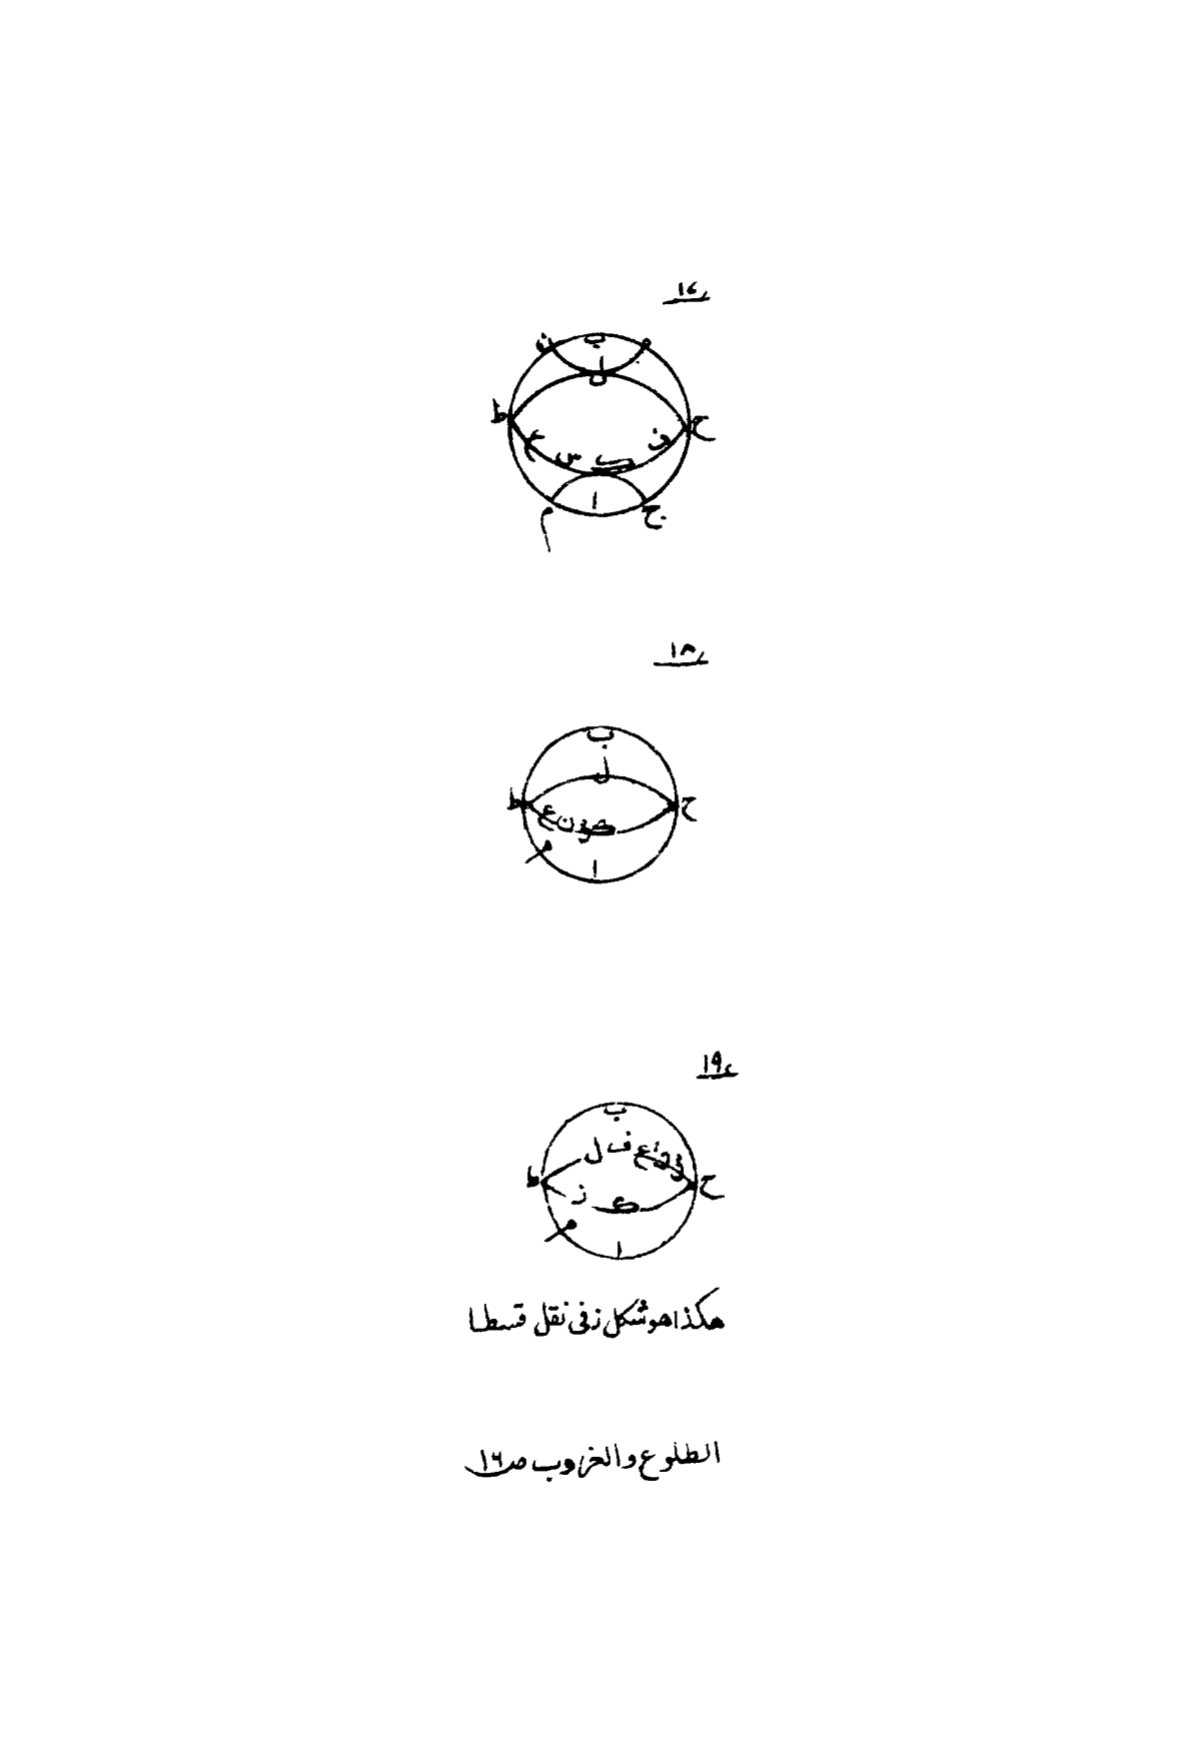 ب
ن
ه
ا
ل
ط
ح
ع
س
ك
ف
ا
م
ج
١٨
ب
ل
ط
ح
ع
ن
م
ا
١٩
ب
ل ف ع
ط
ح
ز
ك
م
ا
هكذا هو شكل ز فى نقل قسطا
الطلوع والغروب ص١٦